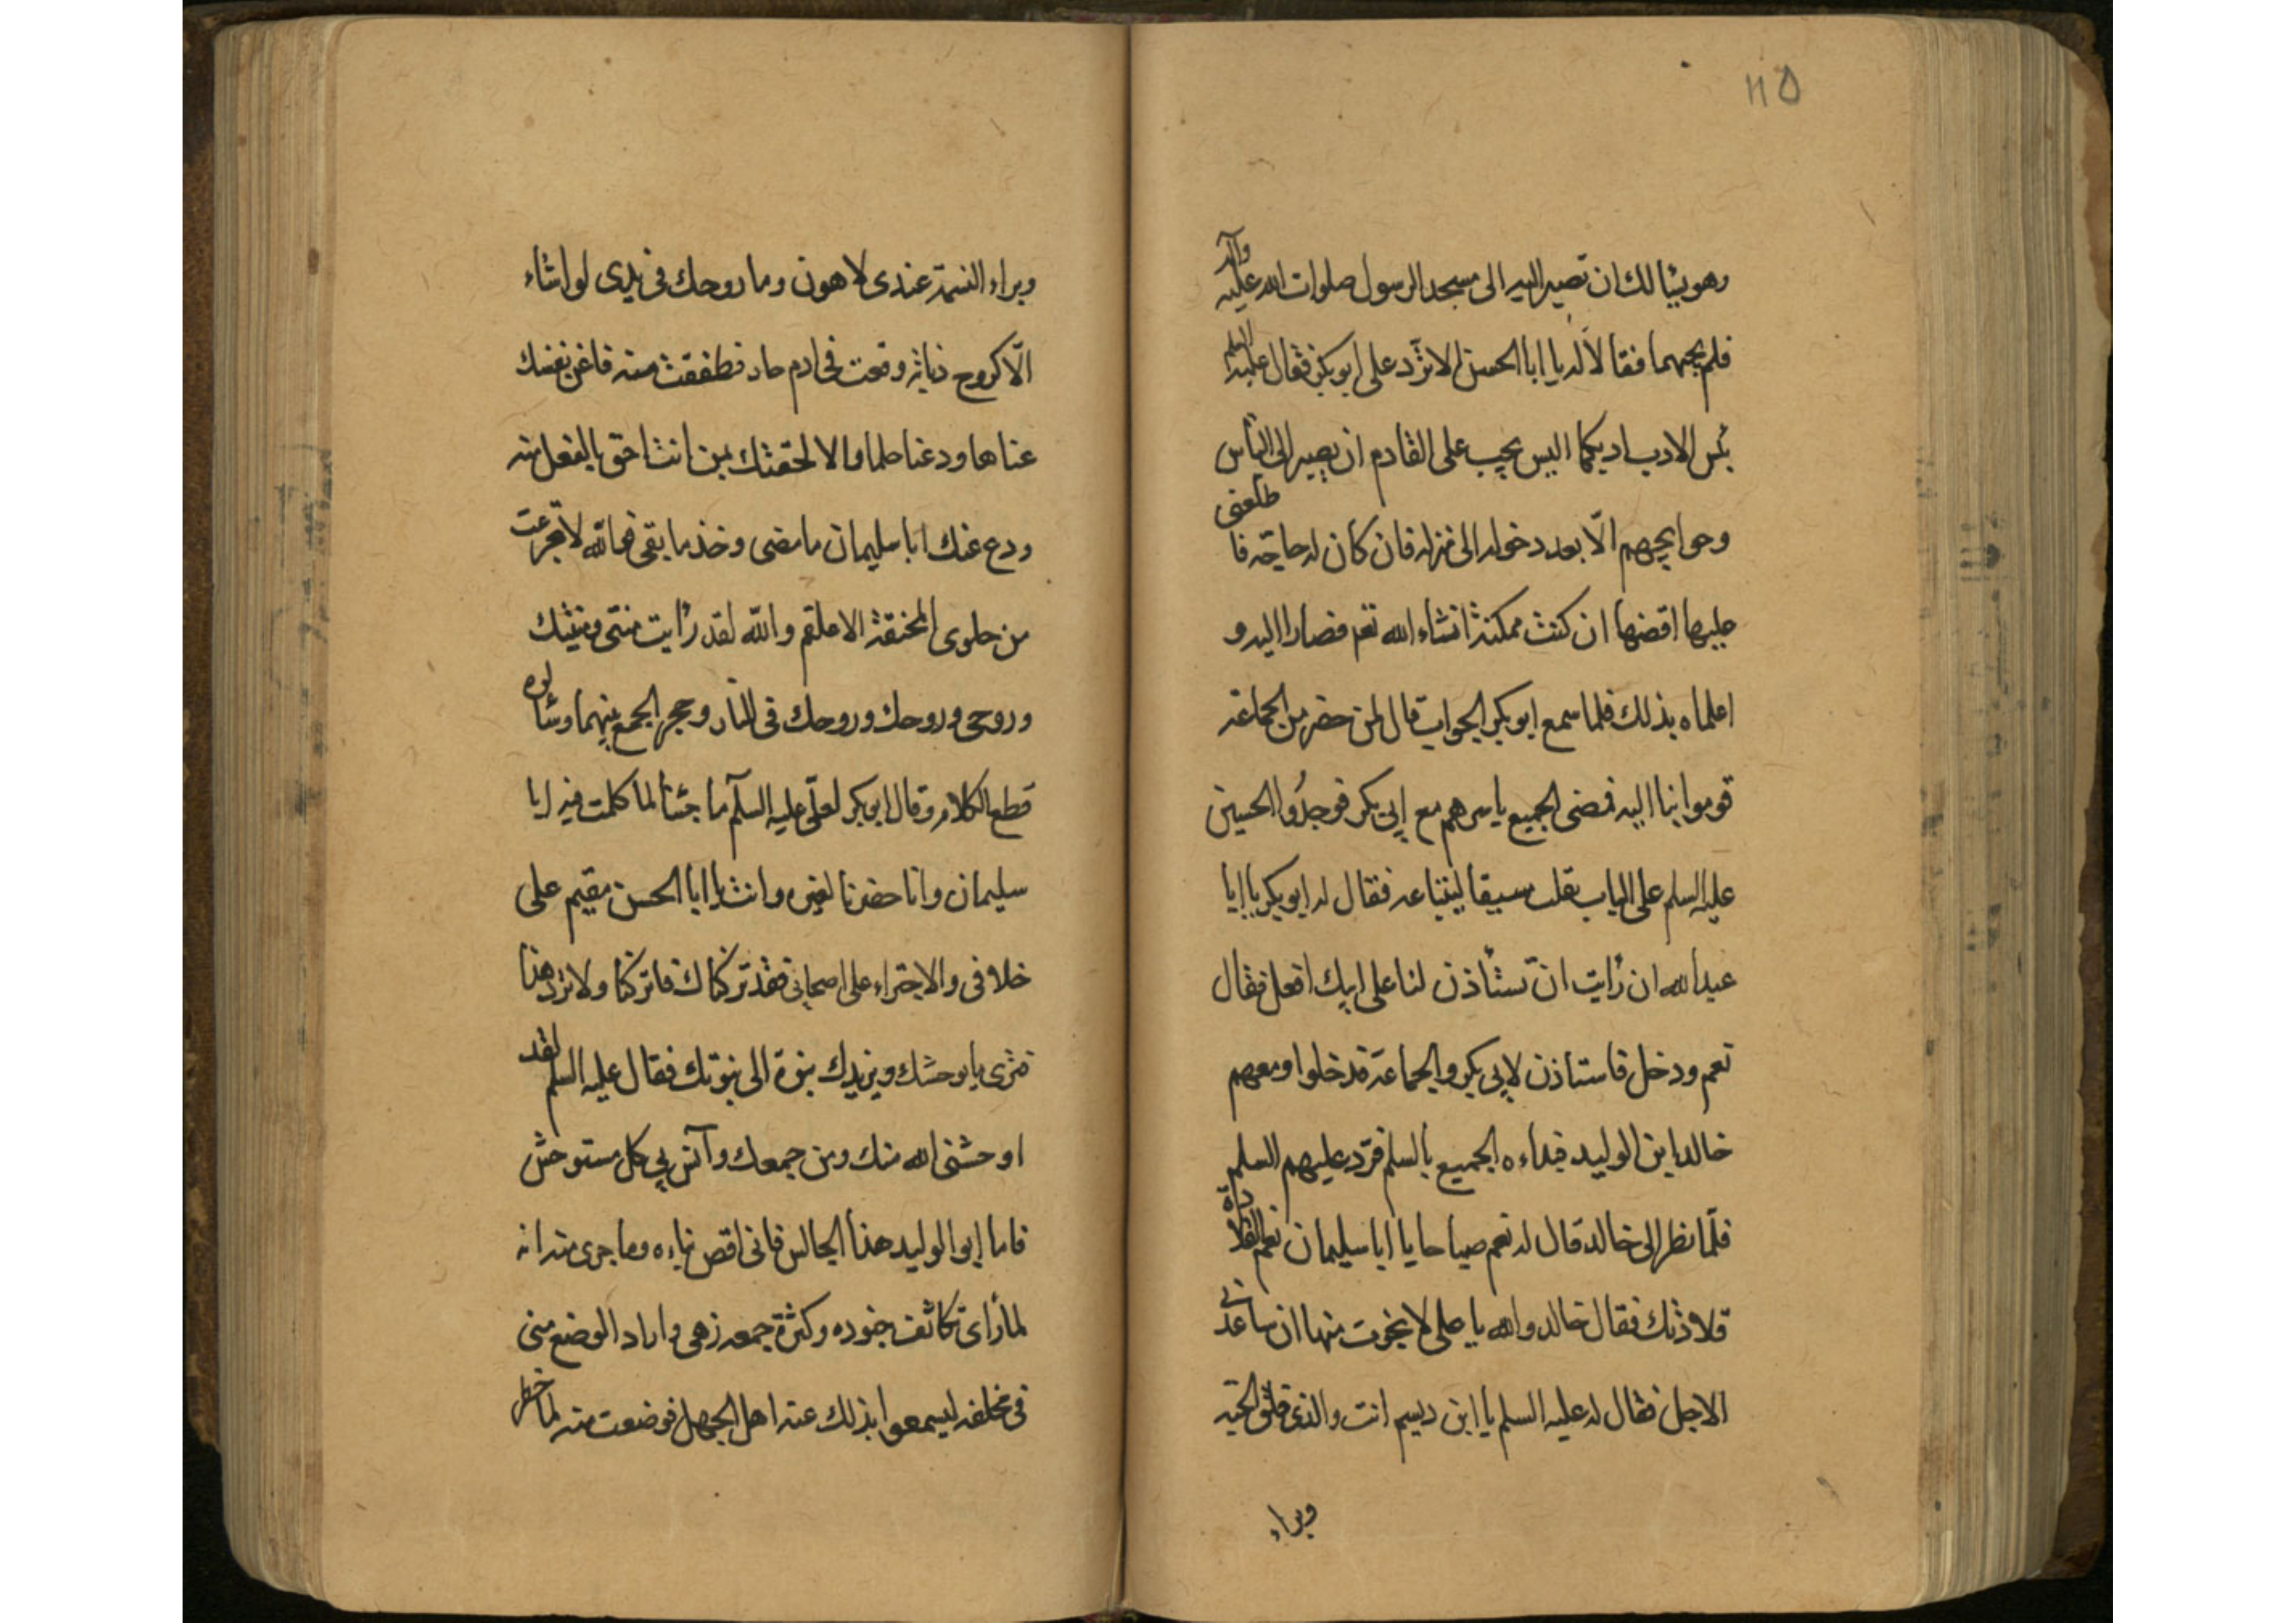 ١١٥
وهو يسالك ان تصير اليه الى مسجد الرسول صلوات الله عليه وآله
فلم يجبهما فقالا له يا ابا الحسن الا ترد على ابو بكر فقال عليه السلم
بئس الادب ادبكما اليس يجب على القادم ان يصير الى الناس
وحوايجهم الّا بعد دخوله الى منزله فان كان له حاجة فا طلعنى
عليها اقضها ان كنت ممكنة انشاء الله نعم فصارا اليه و
اعلماه بذلك فلما سمع ابو بكر الجواب قال لمن حضر من الجماعة
قوموا بنا اليه فمضى الجميع باسرهم مع ابى بكر فوجدُوا الحسين
عليه السلم على الباب يقلب سيفا ليبتاعه فقال له ابو بكر يا ابا
عبد الله ان رايت ان تستأذن لنا على ابيك افعل فقال
نعم ودخل فاستاذن لابى بكر والجماعة فدخلوا ومعهم
خالد ابن الوليد فبداءه الجميع بالسلم فرّد عليهم السلم
فلّما نظر الى خالد قال له نعم صباحا يا ابا سليمان نعم القلادة
قلادتك فقال خالد والله يا على لا نجوت منها ان ساعدنى
الاجل فقال له عليه السلم يا ابن دبيم انت والذى فلق الحبّه
وبراء
وبراء النسمة عندى لاهون وما روحك فى يدى لو اشاء
الّا كروح ذبابة وقعت فى ادم حار فطفقت منه فاغن بنفسك
عناها ودعنا حلما والا لحقتك بمن انت احق بالفعل منه
ودع عنك ابا سليمان ما مضى وخذ ما بقى فوالله لا تجرعت
من حلوى المخنقة الا علقم والله لقد رايت منتى ومنيتك
وروحى وروحك وروحك فى النار وحجر الجمع بينهما وسالوه
قطع الكلام وقال ابو بكر لعلّى عليه السلم ما جئنا لما كلمت فيه ابا
سليمان وانا حضرنا لغيره وانت يا ابا الحسن مقيم على
خلافى والاجتراء على اصحابى فقد تركناك فاتركنا ولا تردهنا
فترى ما يوحشك ويزيدك نبوة الى نبوتك فقال عليه السلم لقد
اوحشنى الله منك ومن جمعك وآنس بى كل مستوحش
فاما ابو الوليد هذا الجالس فانى اقص نباءه وما جرى منه انه
لما راى تكاثف جنوده وكثرة جمعه زهى واراد الوضع منى
فى محلفه ليسمعوا بذلك عنه اهل الجهل فوضعت منه لما خطر